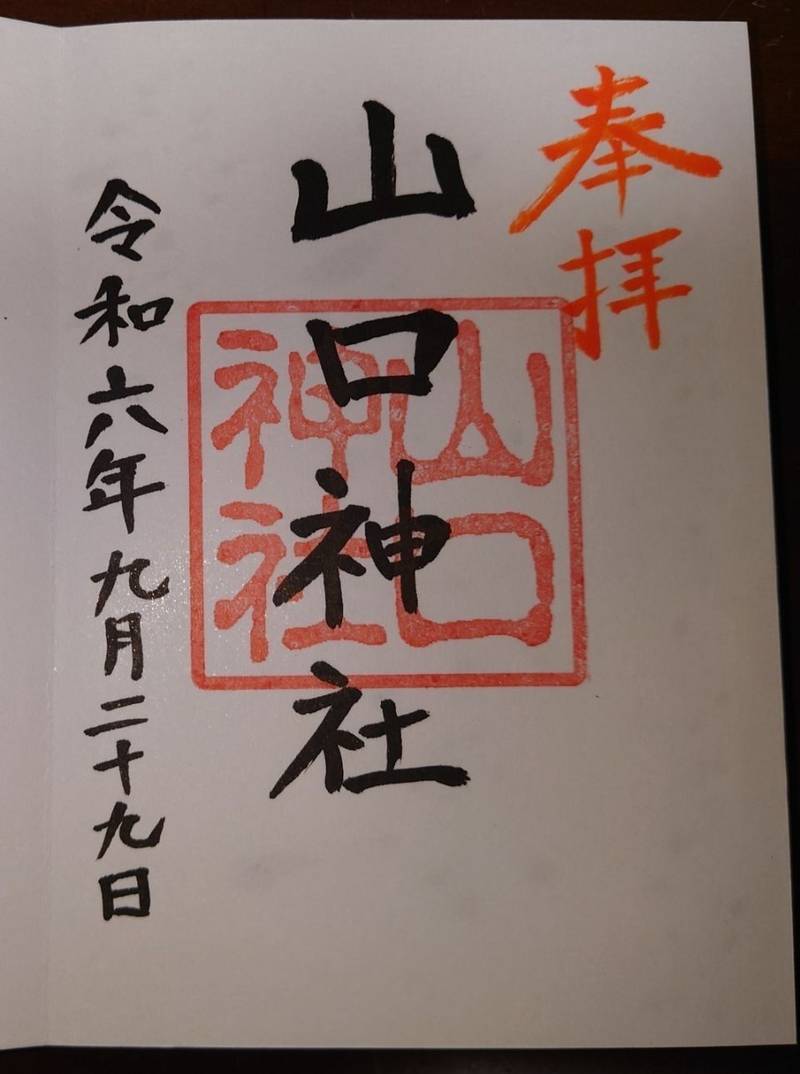 奉拝
山口神社
山口神社
令和六年九月二十九日